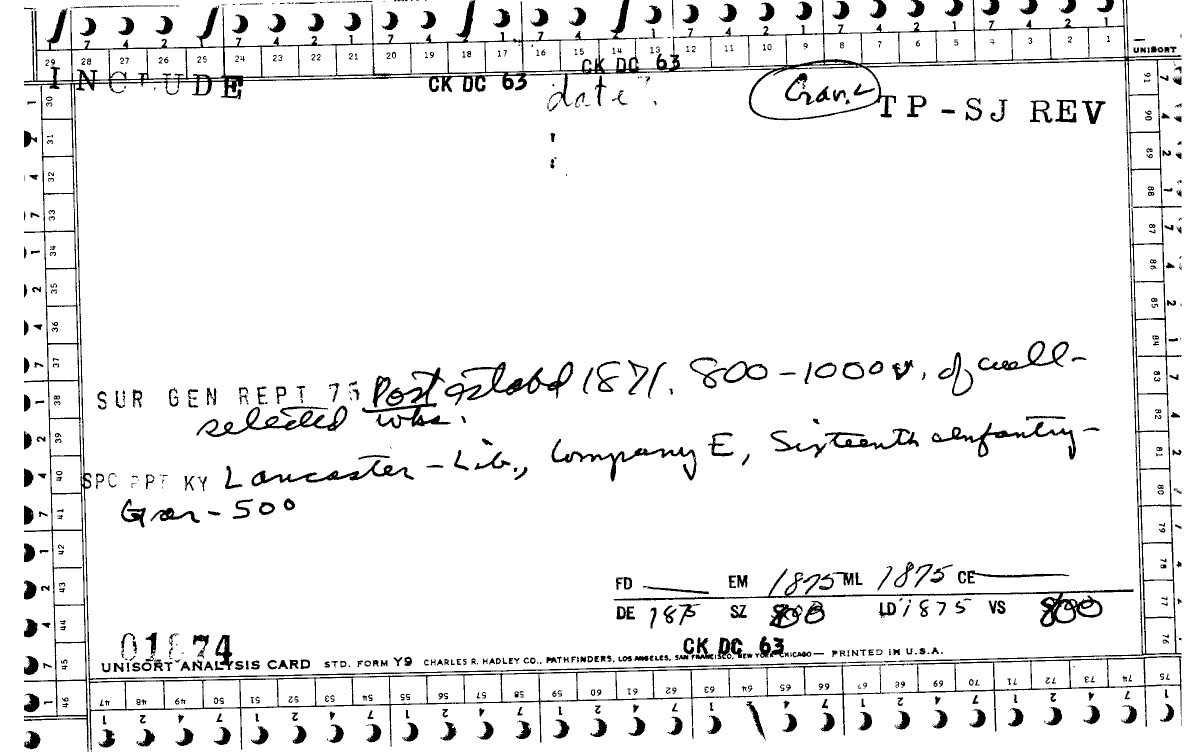 7 4 2 1 7 4 2 1 7 4 2 1 7 4 2 1 7 4 2 1 7 4 2 1
29 28 27 26 25 24 23 22 21 20 19 18 17 16 15 14 13 12 11 10 9 8 7 6 5 4 3 2 1
UNISORT
INCLUDE CK DC 63 CK DC 63
date?
TP-SJ REV
SUR GEN REPT 75 Post establd 1871. 800-1000v. of well-
selected wks.
SPC RPT KY Lancaster-Lib., Company E, Sixteenth Infantry-
Gar-500
FD EM 1875 ML 1875 CE
DE 1875 SZ 800 LD 1875 VS 800
CK DC 63
UNISORT ANALYSIS CARD STD. FORM Y9 CHARLES R. HADLEY CO., PATHFINDERS, LOS ANGELES, SAN FRANCISCO, NEW YORK, CHICAGO— PRINTED IN U.S.A.
30 31 32 33 34 35 36 37 38 39 40 41 42 43 44 45 46
91 90 89 88 87 86 85 84 83 82 81 80 79 78 77 76
47 48 49 50 51 52 53 54 55 56 57 58 59 60 61 62 63 64 65 66 67 68 69 70 71 72 73 74 75